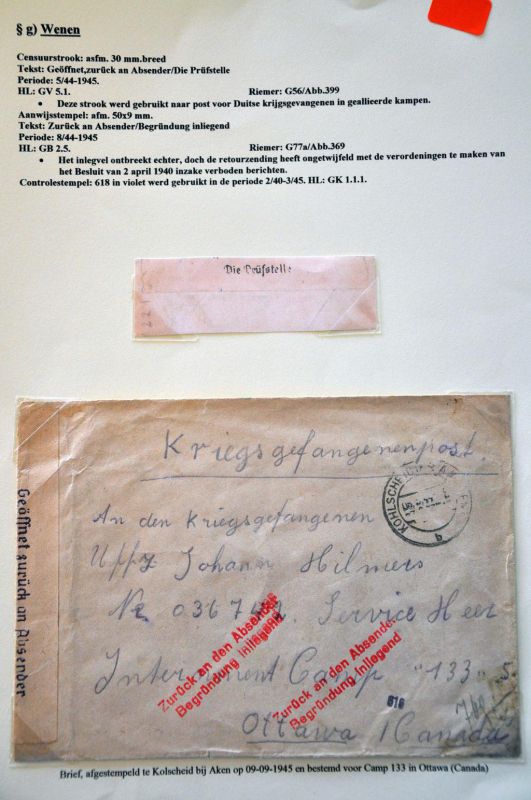 § g) Wenen
Censuurstrook: asfm. 30 mm.breed
Tekst: Geöffnet,zurück an Absender/Die Prüfstelle
Periode: 5/44-1945.
HL: GV 5.1. Riemer: G56/Abb.399
• Deze strook werd gebruikt naar post voor Duitse krijgsgevangenen in geallieerde kampen.
Aanwijsstempel: afm. 50x9 mm.
Tekst: Zurück an Absender/Begründung inliegend
Periode: 8/44-1945
HL: GB 2.5. Riemer: G77a/Abb.369
• Het inlegvel ontbreekt echter, doch de retourzending heeft ongetwijfeld met de verordeningen te maken van
het Besluit van 2 april 1940 inzake verboden berichten.
Controlestempel: 618 in violet werd gebruikt in de periode 2/40-3/45. HL: GK 1.1.1.
Die Prüfstelle
Kriegsgefangenenpost.
KOHLSCHEID
b
Geöffnet,zurück an Absender
An den Kriegsgefangenen
Uffz Johann Hilmers
Nr. 0367 Service Heer
Zurück an den Absender
Begründung inliegend
Internment Camp "133"
Zurück an den Absender
Begründung inliegend
618
Ottawa /Canada
Brief, afgestempeld te Kolscheid bij Aken op 09-09-1945 en bestemd voor Camp 133 in Ottawa (Canada)